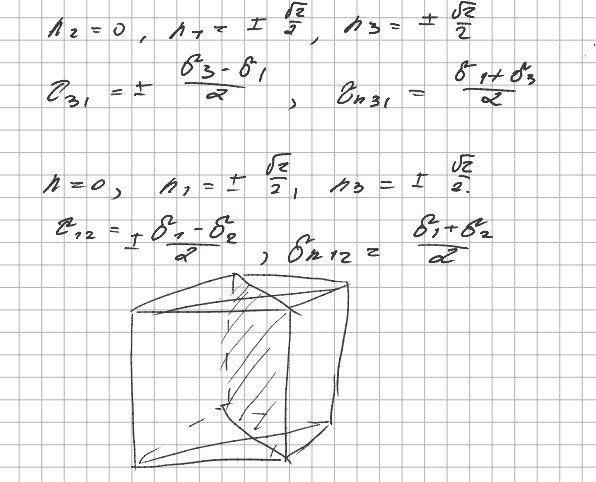 n₂ = 0, n₁ = ± √2/2, n₃ = ± √2/2
τ₃₁ = ± (σ₃ - σ₁)/2, σₙ₃₁ = (σ₁ + σ₃)/2
n = 0, n₁ = ± √2/2, n₃ = ± √2/2.
τ₁₂ = ± (σ₁ - σ₂)/2, σₙ₁₂ = (σ₁ + σ₂)/2